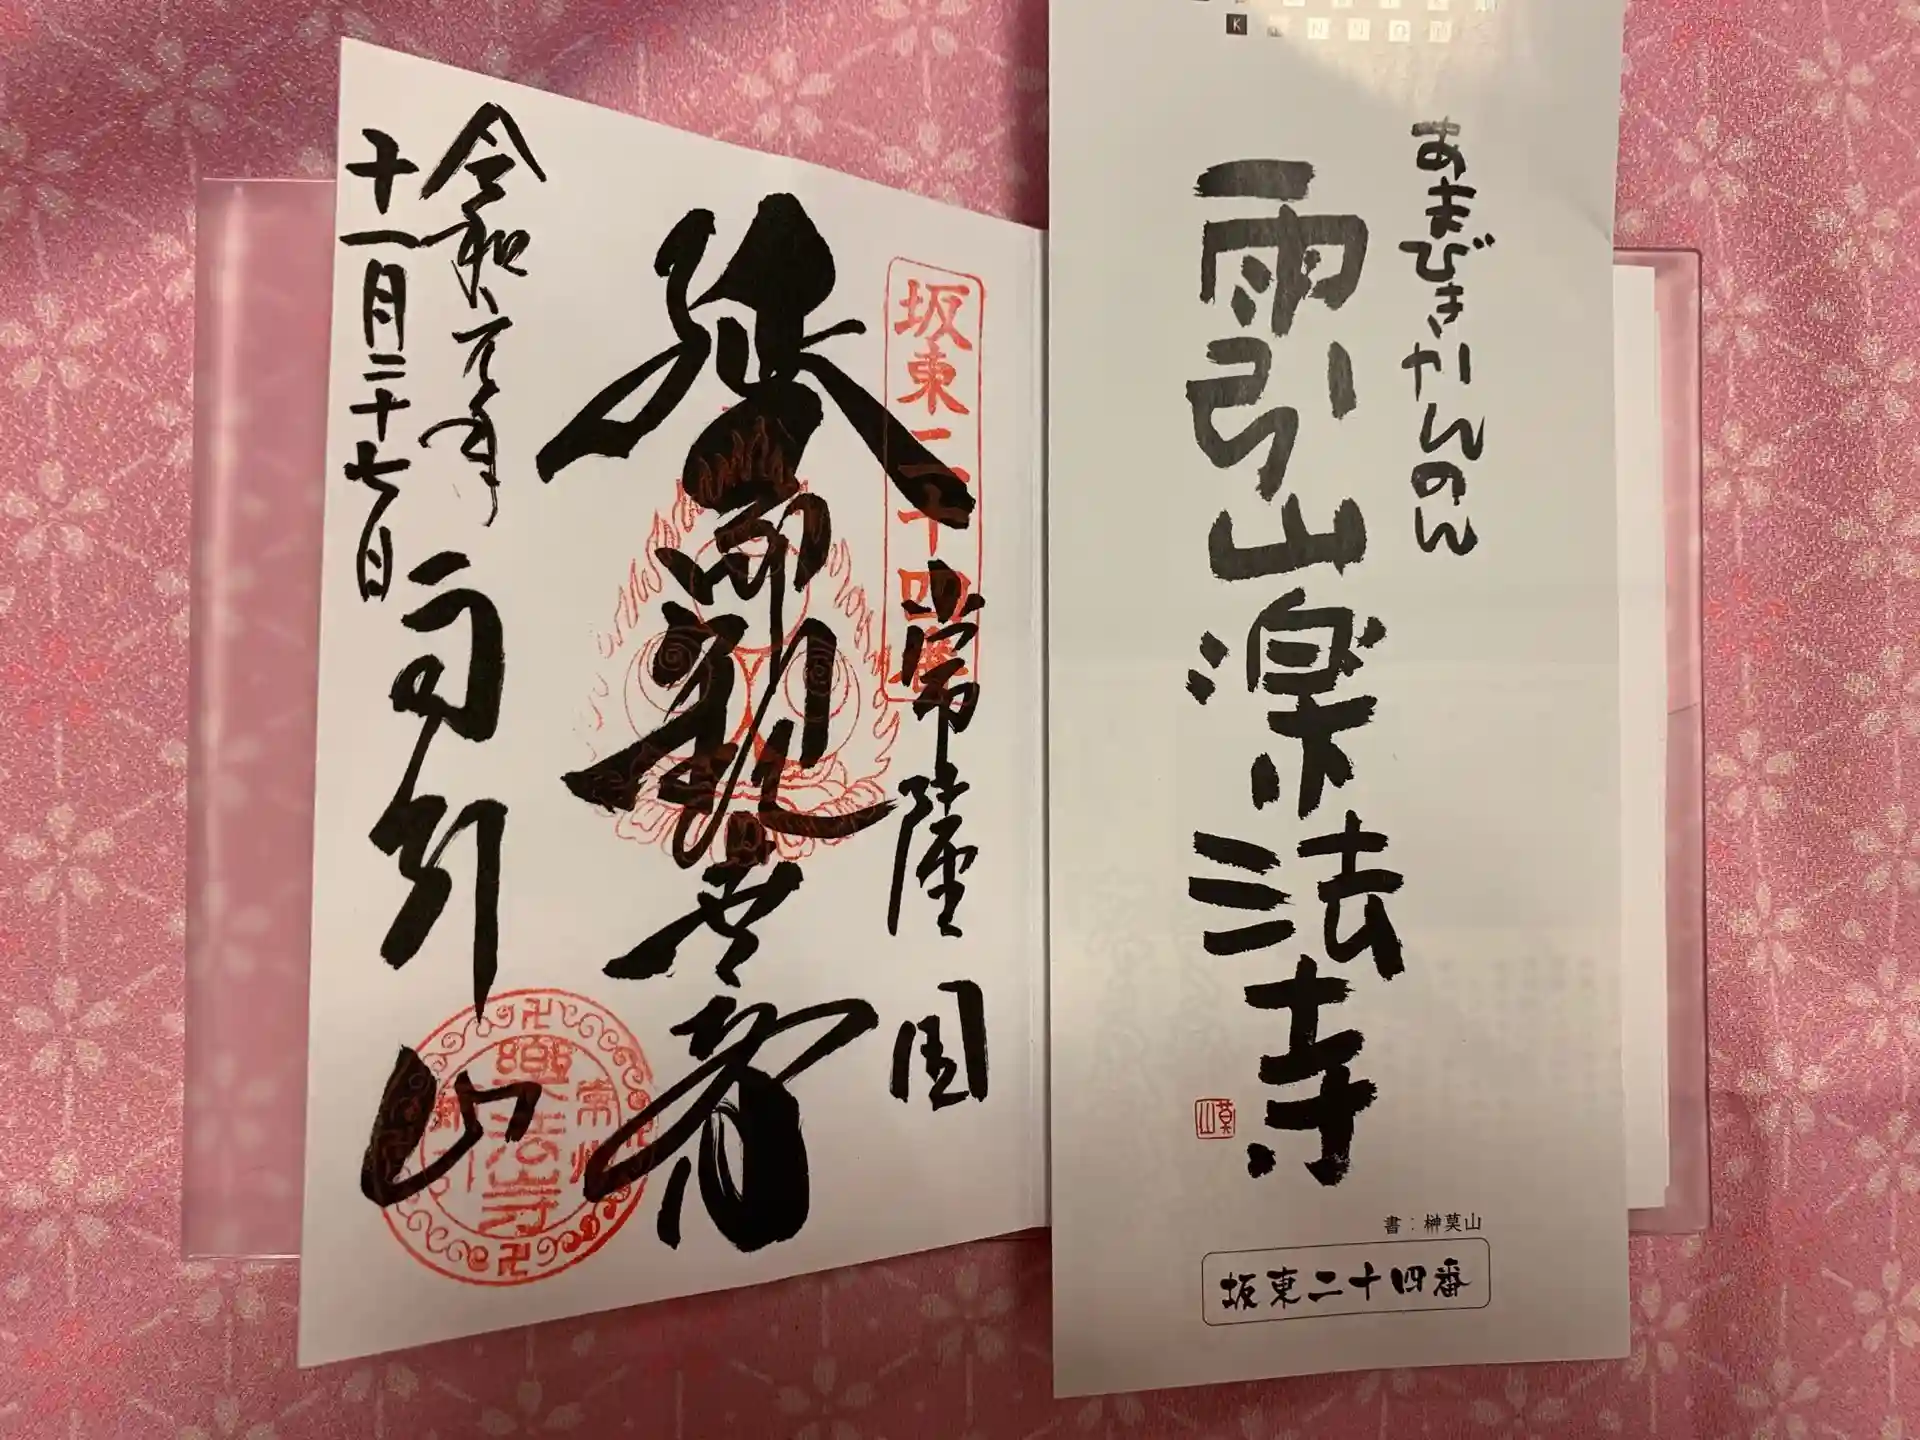 坂東二十四番
常陸國
延命観世音
雨引山
令和元年
十一月二十七日
常州
樂法寺
雨引
あまびきかんのん
雨引山楽法寺
莫山
書：榊莫山
坂東二十四番